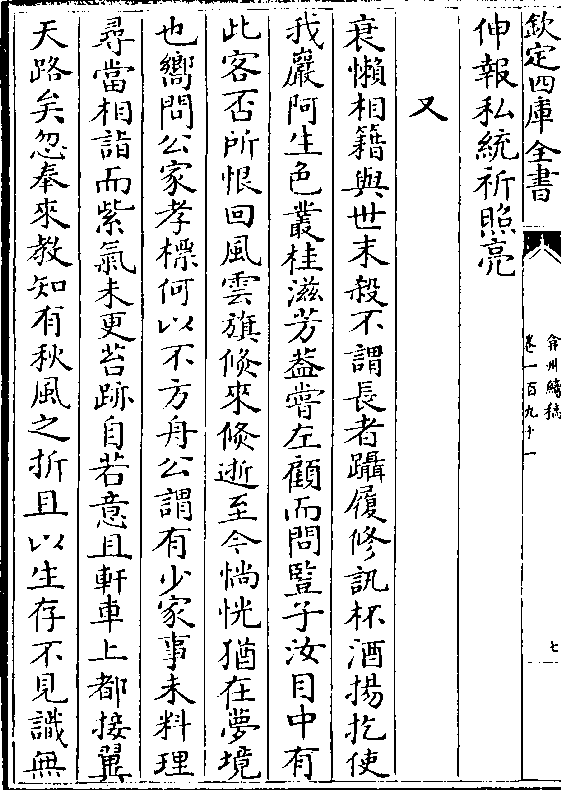 欽定四庫全書
弇州續稿
卷一百九十一
七
伸報私統祈照亮
又
衰懶相籍與世末殺不謂長者躡履修訊杯酒揚扢使
我巖阿生色叢桂滋芳葢嘗左顧而問豎子汝目中有
此客否所恨回風雲旗倐來倐逝至今惝恍猶在夢境
也嚮問公家孝標何以不方舟公謂有少家事未料理
尋當相詣而紫氣未更苔跡自若意且軒車上都接翼
天路矣忽奉來教知有秋風之折且以生存不見識無